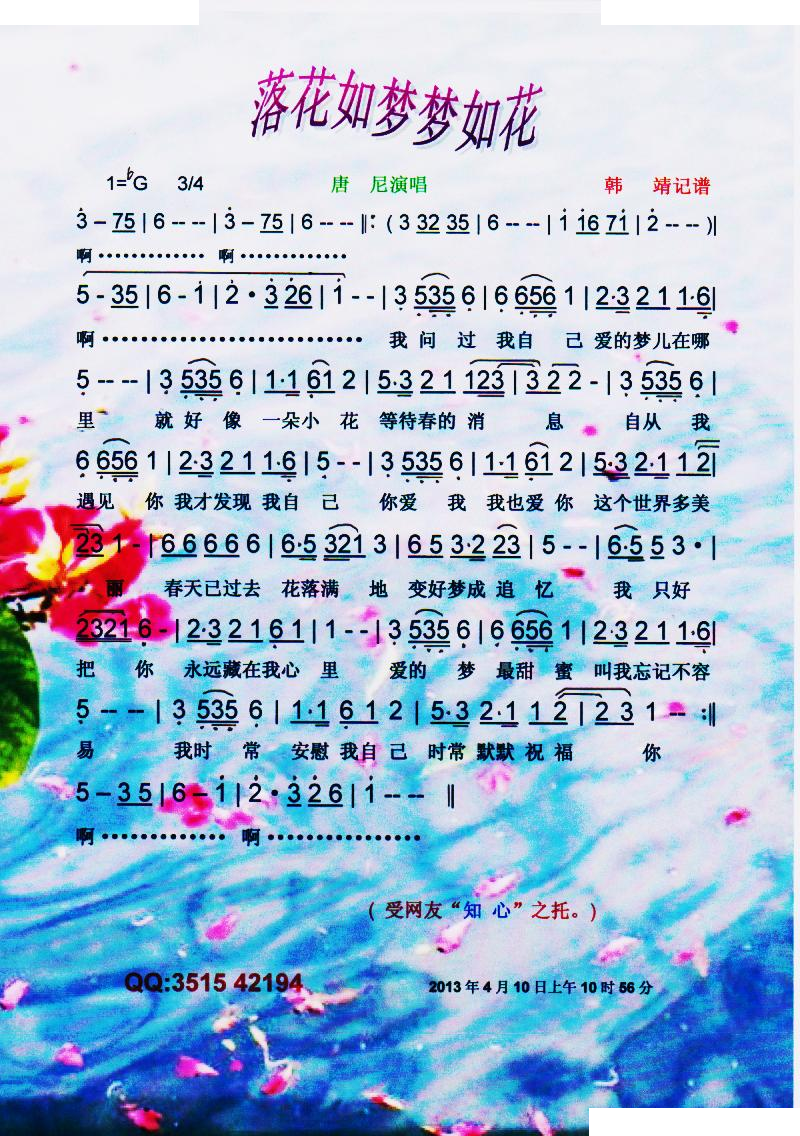 落花如梦梦如花
1=♭G 3/4 唐 尼演唱 韩 靖记谱
3 – 75 | 6 -- -- | 3 – 75 | 6 -- -- ‖: ( 3 32 35 | 6 -- -- | 1 16 71 | 2 -- -- )|
啊············· 啊·············
5 - 35 | 6 - 1 | 2 · 3 26 | 1 - - | 3 535 6 | 6 656 1 | 2·3 2 1 1·6|
啊································ 我 问 过 我自 己 爱的梦儿在哪
5 -- -- | 3 535 6 | 1·1 61 2 | 5·3 2 1 123 | 3 2 2 - | 3 535 6 |
里 就 好 像 一朵小 花 等待春的 消 息 自从 我
6 656 1 | 2·3 2 1 1·6 | 5 - - | 3 535 6 | 1·1 61 2 | 5·3 2·1 1 2|
遇见 你 我才发现 我自 己 你爱 我 我也爱 你 这个世界多美
23 1 - | 6 6 6 6 6 | 6·5 321 3 | 6 5 3·2 23 | 5 - - | 6·5 5 3 · |
丽 春天已过去 花落满 地 变好梦成 追 忆 我 只好
2321 6 - | 2·3 2 1 6 1 | 1 - - | 3 535 6 | 6 656 1 | 2·3 2 1 1·6|
把 你 永远藏在我心 里 爱的 梦 最甜 蜜 叫我忘记不容
5 -- -- | 3 535 6 | 1·1 6 1 2 | 5·3 2·1 1 2 | 2 3 1 -- :‖
易 我时 常 安慰 我自 己 时常 默默 祝 福 你
5 – 3 5 | 6 – 1 | 2 · 3 2 6 | 1 -- -- ‖
啊············· 啊················
( 受网友“知 心”之托。)
QQ:3515 42194 2013 年 4 月 10 日上午 10 时 56 分